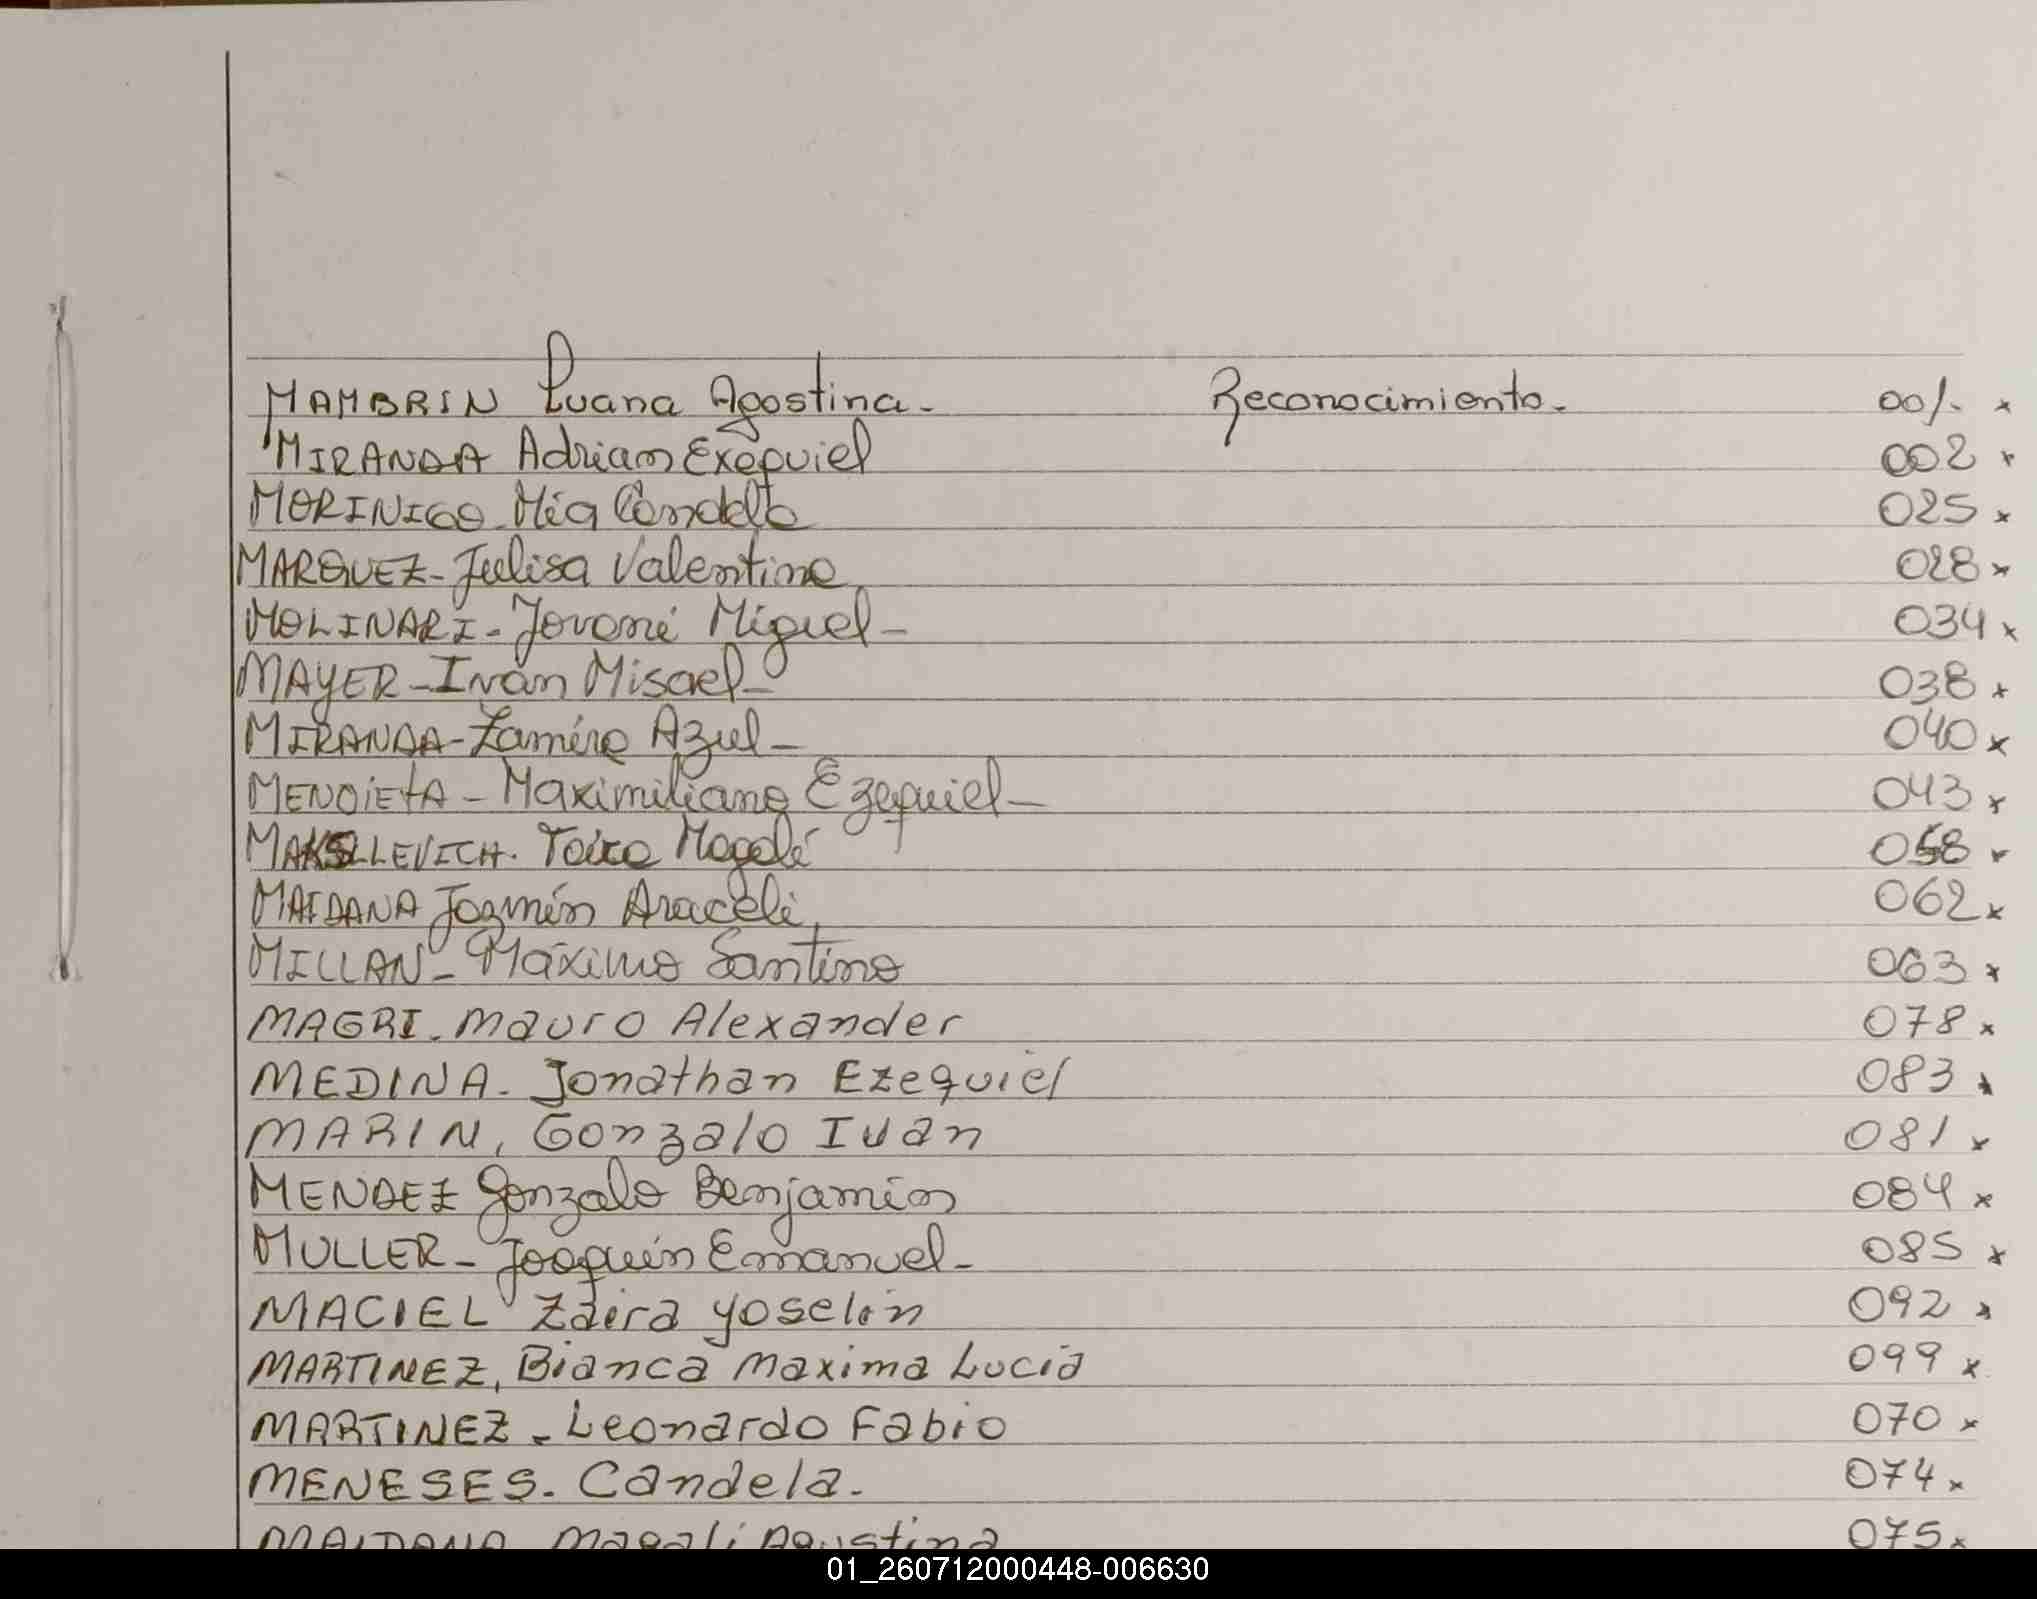 MAMBRIN Luana Agostina- Reconocimiento- 001- x
MIRANDA Adrian Exequiel 002 x
MORINIGO- Mía Candela 025 x
MARQUEZ- Julisa Valentina 028 x
MOLINARI- Jovani Miguel- 034 x
MAYER- Iván Misael- 038 x
MIRANDA- Zamira Azul- 040 x
MENDIETA- Maximiliano Ezequiel- 043 x
Magalí 058 x
MAIDANA Jazmín Araceli 062 x
MILLAN- Máximo Santino 063 x
MAGRI- Mauro Alexander 078 x
MEDINA- Jonathan Ezequiel 083 x
MARIN, Gonzalo Ivan 081 x
MENDEZ Gonzalo Benjamín 084 x
MULLER- Joaquín Emanuel- 085 x
MACIEL Zaira Yoselin 092 x
MARTINEZ, Bianca Maxima Lucia 099 x
MARTINEZ- Leonardo Fabio 070 x
MENESES- Candela. 074 x
MAIDANA Magali Agustina 075 x
01_260712000448-006630